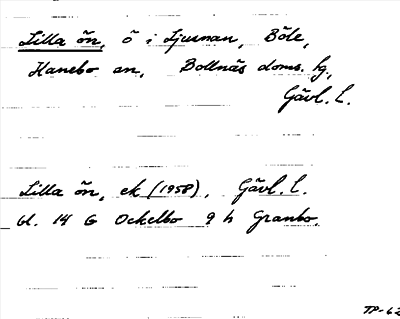 Lilla ön, ö i Ljusnan, Böle,
Hanebo sn, Bollnäs doms. hg,
Gävl. l.
Lilla ön, ek (1958), Gävl. l.
bl. 14 G Ockelbo 9 h Granbo.
TP-62